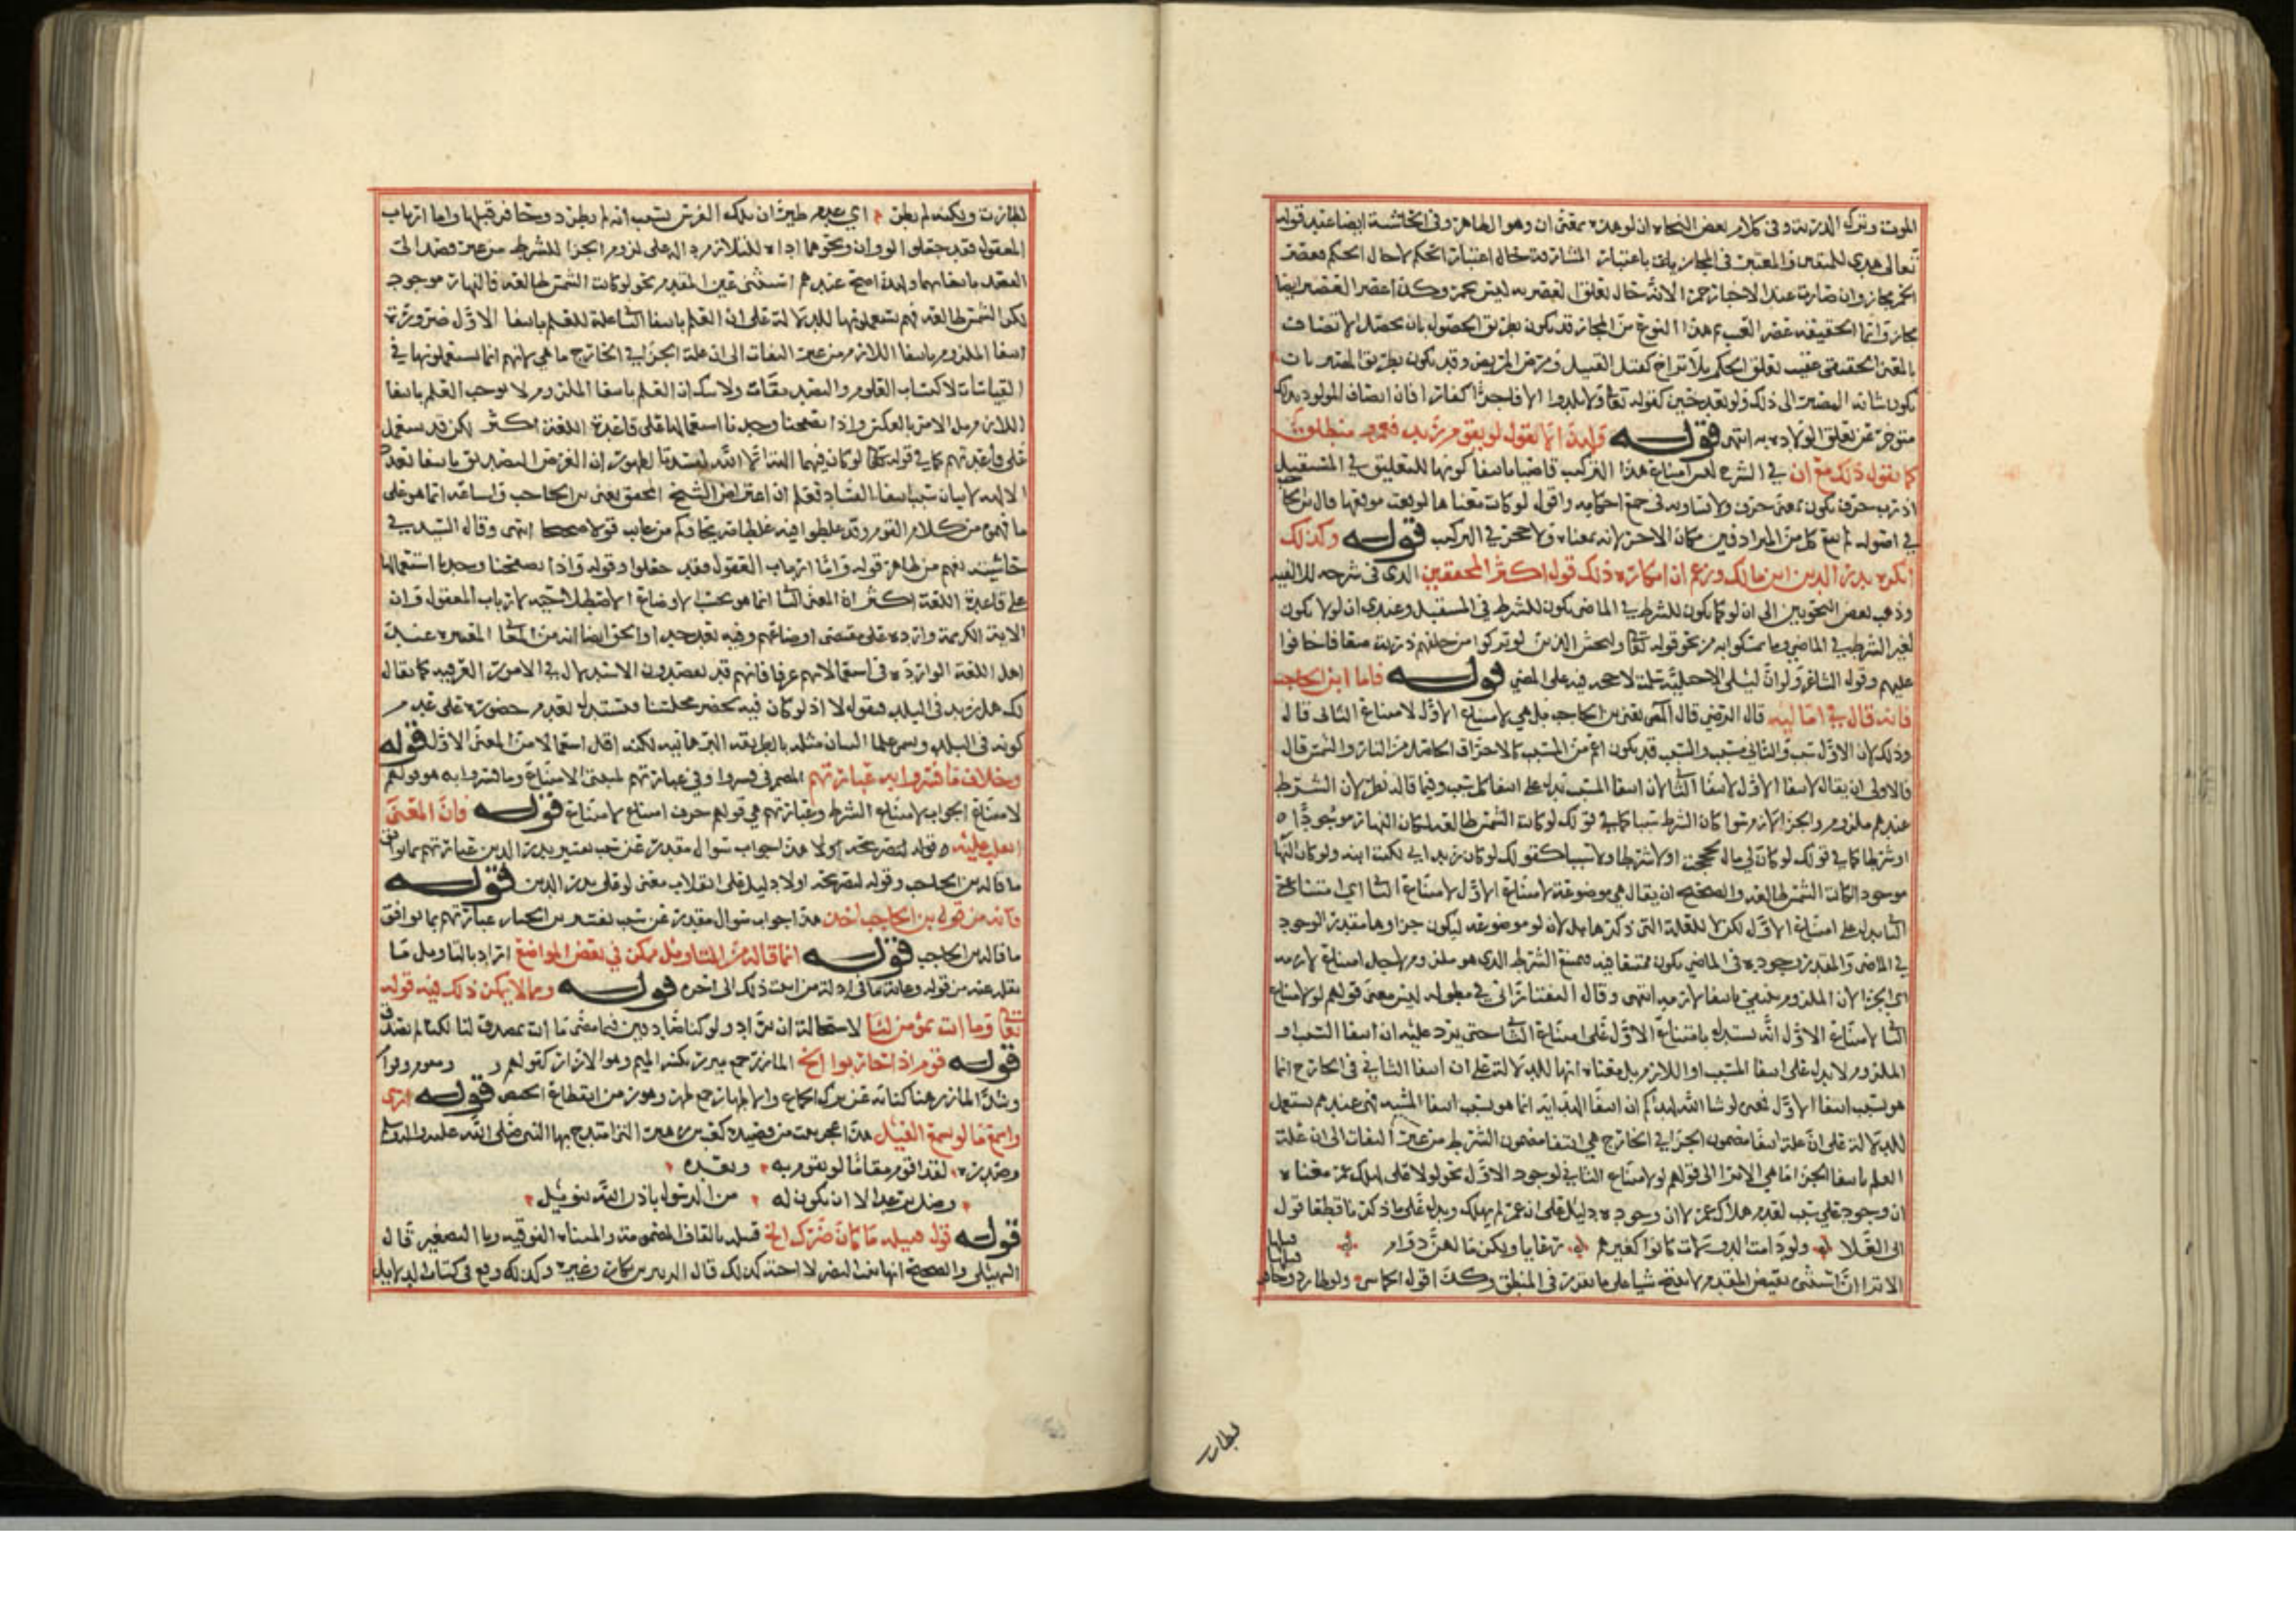 الموت وترك الذرية وفي كلام بعض النحاة ان لو هذه بمعنى ان وهو الظاهر وفي الحاشية ايضا عند قوله
تعالى هدى للمتقين المعتبر في المجاز باعتبار المشارفة حال اعتبار الحكم لا حال الحكم فعصر
الخمر مجاز وان صارت عند الاخبار خمرا لانه حال تعلق العصر به ليس بخمر وكذا عصر العصير ايضا
مجاز وانما الحقيقة عصر العنب ثم هذا النوع من المجاز قد يكون بطريق الحصول بان يحصل الاتصاف
بالمعنى الحقيقي عقيب تعلق الحكم بلا تراخ كقتل القتيل ومرض المريض وقد يكون بطريق المصير بان
يكون شانه المصير الى ذلك ولو بعد حين كقوله تعا ولا يلدوا الا فاجرا كفارا فان اتصاف المولود بذلك
متوخر عن تعلق الولادة به انتهى قوله ولهذا لا تقول لو يقوم زيد فعمرو منطلق
كما تقول ذلك مع ان في الشرح ليس امتناع هذا التركيب قاضيا بانتفا كونها للتعليق في المستقبل
اذ رب حرف يكون بمعنى حرف ولا يساويه في جميع احكامه واقول لو كانت بمعناها لوقعت موقعها قال ابن الحاجب
في اصوله يقع كل من المترادفين مكان الاخر لانه بمعناه ولا حجر في التركيب قوله وكذلك
انكره بدر الدين ابن مالك وزعم ان انكاره ذلك قول اكثر المحققين الذي في شرحه للالفية
وذهب بعض النحويين الى ان لو كما يكون للشرط في الماضي يكون للشرط في المستقبل وعندي ان لو لا يكون
لغير الشرط في الماضي وما تمسكوا به من نحو قوله تعا وليخش الذين لو تركوا من خلفهم ذرية ضعافا خافوا
عليهم وقول الشاعر ولو ان ليلى الاخيلية سلمت لا حجة فيه على المضي قوله فاما ابن الحاجب
فانه قال في اماليه قال الرضي قال المص يعني ابن الحاجب بل هي لامتناع الاول لامتناع الثاني قال
وذلك لان الاول سبب والثاني مسبب والمسبب قد يكون اعم من السبب كالاحتراق الحاصل من النار والشمس قال
فالاولى ان يقال لانتفا الاول لانتفا الثاني لان انتفا المسبب يدل على انتفا كل سبب وفيما قاله نظر لان الشرط
عندهم ملزوم والجزا لازم سوا كان الشرط سببا كما في قولك لو كانت الشمس طالعة لكان النهار موجودا
او شرطا كما في قولك لو كان لي مال لحججت او لا شرطا ولا سببا كقولك لو كان زيد ابي لكنت ابنه ولو كان النهار
موجودا لكانت الشمس طالعة والصحيح ان يقال هي موضوعة لامتناع الاول لامتناع الثاني اي امتناع
الثاني دل على امتناع الاول لكن لا للعلة التي ذكرها بل لان لو موضوعة ليكون جزاوها مقدر الوجود
في الماضي والمقدر وجوده في الماضي يكون ممتنعا فيه فيمتنع الشرط الذي هو ملزوم لاجل امتناع لازمه
اي الجزا لان الملزوم ينتفي بانتفا لازمه انتهى وقال التفتازاني في مطوله ليس معنى قولهم لو لامتناع
الثاني لامتناع الاول انه يستدل بامتناع الاول على امتناع الثاني حتى يرد عليه ان انتفا السبب او
الملزوم لا يدل على انتفا المسبب او اللازم بل معناه انها للدلالة على ان انتفا الثاني في الخارج انما
هو بسبب انتفا الاول فمعنى لو شا الله لهداكم ان انتفا الهداية انما هو بسبب انتفا المشية فهي عندهم تستعمل
للدلالة على ان علة انتفا مضمون الجزا في الخارج هي انتفا مضمون الشرط من غير التفات الى ان علة
العلم بانتفا الجزا ما هي الا ترى الى قولهم لولا لامتناع الثاني لوجود الاول نحو لولا علي لهلك عمر معناه
ان وجود علي سبب لعدم هلاك عمر لا ان وجوده دليل على ان عمر لم يهلك ويدل على ما ذكرنا قطعا قول
ابي العلا ولو دامت الدولات كانوا كغيرهم رعايا ولكن ما لهن دوام
الا ترى ان استثنى نقيض المقدم لا ينتج شيا على ما تقرر في المنطق وكذا قول الحماسي ولو طار ذو حافر قبلها
لطارت
لطارت ولكنه لم يطر اي عدم طيران تلك الفرس بسبب انه لم يطر ذو حافر قبلها واما ارباب
المعقول فقد جعلوا لو وان ونحوهما اداة للتلازم دالة على لزوم الجزا للشرط من غير قصد الى
القطع بانتفائهما ولهذا صح عندهم استثنى عين المقدم نحو لو كانت الشمس طالعة فالنهار موجود
لكن الشمس طالعة فهم يستعملونها للدلالة على ان العلم بانتفا الثاني علة للعلم بانتفا الاول ضرورة
انتفا الملزوم بانتفا اللازم من غير التفات الى ان علة الجزا في الخارج ما هي لانهم انما يستعملونها في
القياسات لاكتساب العلوم والتصديقات ولا شك ان العلم بانتفا الملزوم لا يوجب العلم بانتفا
اللازم بل الامر بالعكس واذا تصفحنا وجدنا استعمالها على قاعدة اللغة اكثر لكن قد يستعمل
على قاعدتهم كما في قوله تعا لو كان فيهما الهة الا الله لفسدتا لظهور ان الغرض التصديق بانتفا تعدد
الالهة لا بيان سبب انتفا الفساد فعلم ان اعتراض الشيخ المحقق يعني ابن الحاجب واتباعه انما هو على
ما فهموه من كلام القوم وقد غلطوا فيه غلطا صريحا وكم من عايب قولا صحيحا انتهى وقال السيد في
حاشيته يفهم من ظاهر قوله واما ارباب المعقول فقد جعلوا وقوله واذا تصفحنا وجدنا استعمالها
على قاعدة اللغة اكثر ان المعنى الثاني انما هو بحسب الاوضاع الاصطلاحية لارباب المعقول وان
الاية الكريمة واردة على مقتضى اوضاعهم وفيه بعد جدا والحق ايضا انه من المعاني المعتبرة عند
اهل اللغة الواردة في استعمالاتهم عرفا فانهم قد يقصدون الاستدلال في الامور العرفية كما يقال
لك هل زيد في البلد فتقول لا اذ لو كان فيه لحضر مجلسنا فتستدل بعدم حضوره على عدم
كونه في البلد ويسمي علما البيان مثله بالطريقة البرهانية لكنه اقل استعمالا من المعنى الاول قوله
وخلاف ما فسروا به عبارتهم الضمير في فسروا وفي عبارتهم لمبتغي الامتناع وما فسروا به هو قولهم
لامتناع الجواب لامتناع الشرط وعبارتهم هي قولهم حرف امتناع لامتناع قوله فان المعنى
انقلب عليه قوله لتصريحه اولا هذا جواب سوال مقدر عن سبب تفسير بدر الدين عبارتهم بما يوافق
ما قاله ابن الحاجب وقوله لتصريحه اولا دليل على انقلاب معنى لو على بدر الدين قوله
فانه من قول ابن الحاجب اخذ هذا جواب سوال مقدر عن سبب تفسير ابن الخباز عبارتهم بما يوافق
ما قاله ابن الحاجب قوله انما قاله من التاويل ممكن في بعض المواضع اراد بالتاويل ما
نقله عنه من قوله وغاية ما في ادلة من اثبت ذلك الى اخره قوله ومما لا يمكن ذلك فيه قوله
تعا وما انت بمؤمن لنا لاستحالة ان يراد ولو كنا صادقين فيما مضى ما انت بمصدق لنا لكنا لم نصدق
قوله قوم اذا حاربوا الخ المازر جمع ميزر بكسر الميم وهو الازار كقولهم
وشد المازر هنا كناية عن ترك الجماع والاطهار جمع طهر وهو زمن انقطاع الحيض قوله ارى
واسمع ما لو يسمع الفيل هذا عجز بيت من قصيدة كعب بن زهير التي امتدح بها النبي صلى الله عليه وسلم
وصدره لقد اقوم مقاما لو يقوم به وبعده
وظل يرعد الا ان يكون له من الرسول باذن الله تنويل
قوله قول قتيلة ما كان ضرك الخ قتيلة بالقاف المضمومة والمثناة الفوقية ويا التصغير قال
السهيلي والصحيح انها بنت النضر لا اخته كذلك قال الزبير بن بكار وغيره وكذلك وقع في كتاب الدلايل